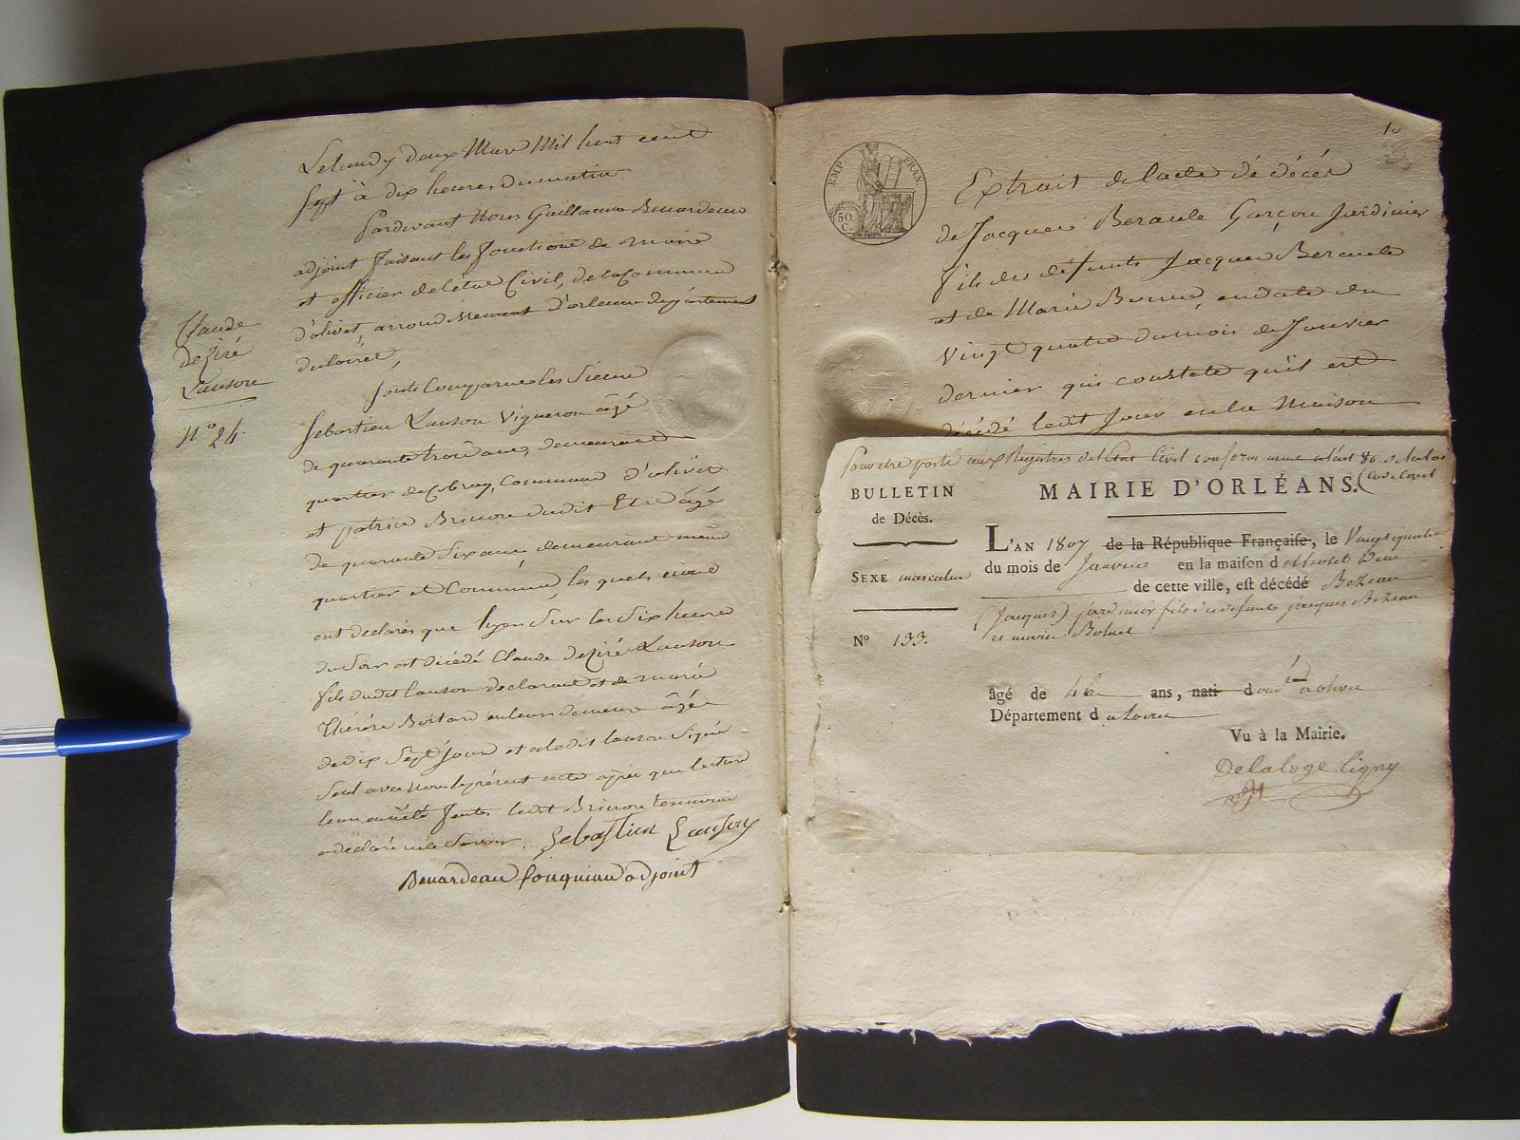 Le lundy deux Mars Mil huit cent
sept à dix heures du matin
Pardevant Nous Guillaume Benardeau
adjoint faisant les fonctions de maire
et officier de l'état Civil, de la Commune
d'olivet, arrondissement d'orleans département
du loiret,
Claude
dezire
Lanson
N° 24.
Sont Comparus les Sieurs
Sebastien Lanson Vigneron âgé
de quarante trois ans, demeurant
quartier de Commune d'olivet
et patrice Brinon dudit Etat âgé
de quarante Six ans demeurant même
quartier et Commune, les quels nous
ont declarés que hyer Sur les Six heures
du Soir est décédé Claude deziré Lanson
fils dudit lanson declarant et de marie
Thérése en leur demeure âgé
de dix Sept Jour et a ledit lanson Signé
Seul avec nous le présent acte après que lecture
leur en a été faite ledit Brinon temoin
a déclaré ne le Savoir. Sebastien Lanson
Benardeau adjoint
10
EMP. FRAN.
50
C.
Extrait de l'acte de décés
de Jacques Beraule Garçon Jardinier
fils des défunts Jacques Beraule
et de Marie en date du
Vingt quatre du mois de Janvier
dernier qui constate qu'il est
décédé ledit Jour en la Maison
Pour etre porté aux Registres de l'état Civil conformément à l'art 80 du
Code Civil
BULLETIN
de Décès.
SEXE masculin
N° 133.
MAIRIE D'ORLÉANS.
L'AN 1807 de la République Française, le Vingt quatre
du mois de Janvier en la maison d
de cette ville, est décédé
(Jacques) jardinier fils de defunts jacques
et marie
âgé de ans, natif d
Département du Loiret
Vu à la Mairie.
Delaloge Ligny